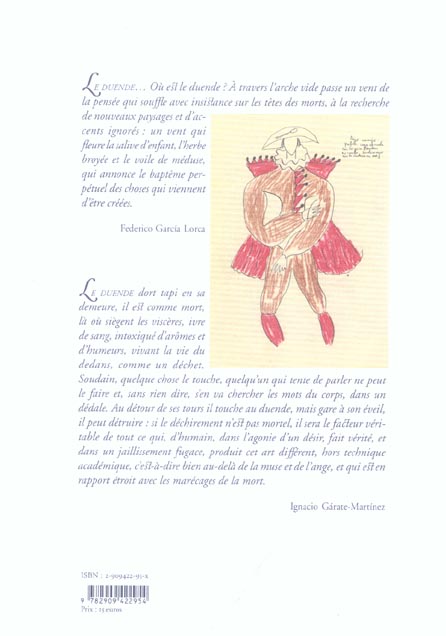 LE DUENDE... Où est le duende ? À travers l'arche vide passe un vent de
la pensée qui souffle avec insistance sur les têtes des morts, à la recherche
de nouveaux paysages et d'ac-
cents ignorés : un vent qui
fleure la salive d'enfant, l'herbe
broyée et le voile de méduse,
qui annonce le baptême per-
pétuel des choses qui viennent
d'être créées.
Federico García Lorca
LE DUENDE dort tapi en sa
demeure, il est comme mort,
là où siègent les viscères, ivre
de sang, intoxiqué d'arômes et
d'humeurs, vivant la vie du
dedans, comme un déchet.
Soudain, quelque chose le touche, quelqu'un qui tente de parler ne peut
le faire et, sans rien dire, s'en va chercher les mots du corps, dans un
dédale. Au détour de ses tours il touche au duende, mais gare à son éveil,
il peut détruire : si le déchirement n'est pas mortel, il sera le facteur véri-
table de tout ce qui, d'humain, dans l'agonie d'un désir, fait vérité, et
dans un jaillissement fugace, produit cet art différent, hors technique
académique, c'est-à-dire bien au-delà de la muse et de l'ange, et qui est en
rapport étroit avec les marécages de la mort.
Ignacio Gárate-Martínez
ISBN : 2-909422-95-x
9 782909 422954
Prix : 15 euros